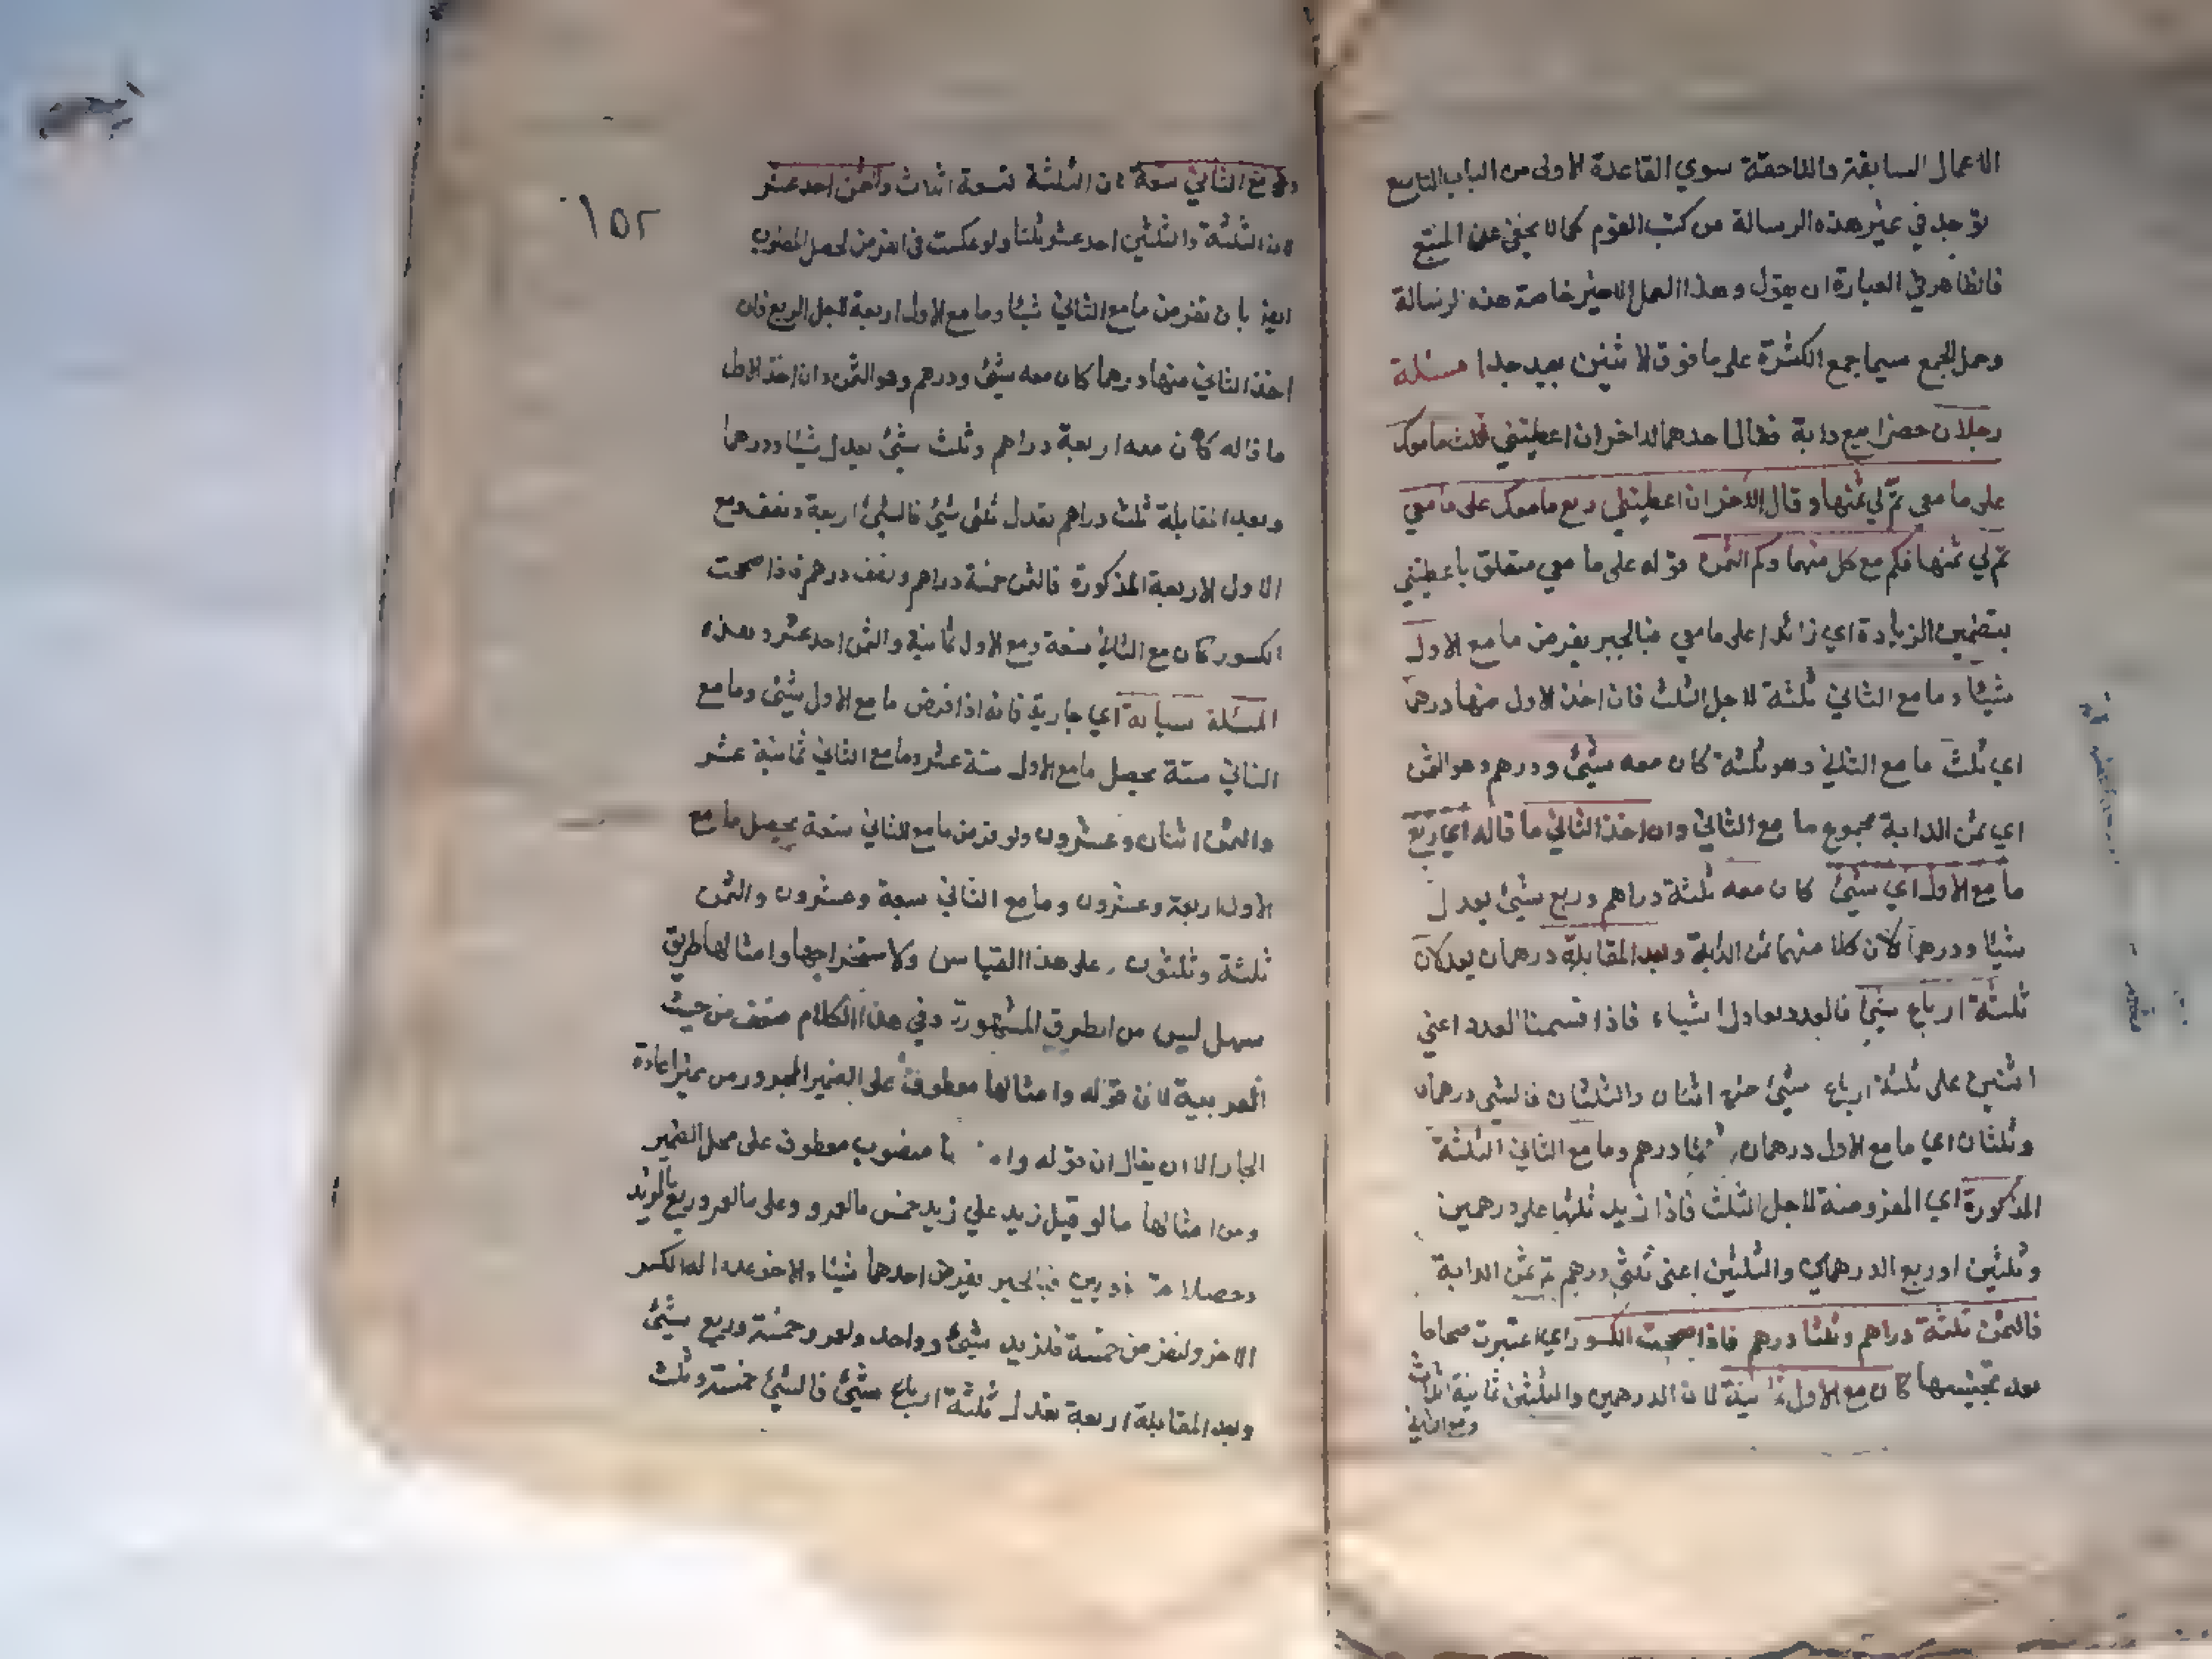 الاعمال السابقة واللاحقة سوي القاعدة الاولى من الباب التاسع
توجد في غير هذه الرسالة من كتب القوم كما لا يخفى على المتتبع
فالظاهر في العبارة ان يقول وهذا العمل الاخير خاصة هذه الرسالة
وحمل الجمع سيما جمع الكثرة على ما فوق الاثنين بعيد جدا مسئلة
رجلان حضرا بيع دابة فقال احدهما للاخر ان اعطيتني ثلث ما معك
على ما معي تم لي ثمنها وقال الاخر ان اعطيتني ربع ما معك على ما معي
تم لي ثمنها فكم مع كل منهما وكم الثمن قوله على ما معي متعلق باعطيتني
بتضمين الزيادة اي زائدا على ما معي فبالجبر يفرض ما مع الاول
شيئا وما مع الثاني ثلثة لاجل الثلث فان اخذ الاول منها درهما
اي ثلث ما مع الثاني وهو ثلثة كان معه شيئ ودرهم وهو الثمن
اي ثمن الدابة مجموع ما مع الثاني وان اخذ الثاني ما قاله اي ربع
ما مع الاول اي شيئ كان معه ثلثة دراهم وربع شيئ يعدل
شيئا ودرهما لان كلا منهما ثمن الدابة وبعد المقابلة درهمان يعدلان
ثلثة ارباع شيئ فالعدد يعادل اشياء فاذا قسمنا العدد اعني
اثنين على ثلثة ارباع شيئ خرج اثنان والثلثان فالشي درهمان
وثلثان اي ما مع الاول درهمان وثلثا درهم وما مع الثاني الثلثة
المذكورة اي المفروضة لاجل الثلث فاذا زيد ثلثها على درهمين
وثلثين او ربع الدرهمين والثلثين اعني ثلثي درهم تم ثمن الدابة
فالثمن ثلثة دراهم وثلثا درهم فاذا صححت الكسور اي اعتبرت صحاحا
بعد تجنيسها كان مع الاول ثمانية لان الدرهمين والثلثين ثمانية اثلاث
ومع الثاني
١٥٢
ومع الثاني تسعة لان الثلثة تسعة اثلاث والثمن احد عشر
لان الثلثة والثلثين احد عشر ثلثا ولو عكست في الفرض لحصل المطلوب
ايضا بان تفرض ما مع الثاني شيئا وما مع الاول اربعة لاجل الربع فان
اخذ الثاني منها درهما كان معه شيئ ودرهم وهو الثمن وان اخذ الاول
ما قاله كان معه اربعة دراهم وثلث شيئ يعدل شيئا ودرهما
وبعد المقابلة ثلث دراهم تعدل ثلثي شيئ فالشيئ اربعة ونصف ومع
الاول الاربعة المذكورة فالثمن خمسة دراهم ونصف درهم فاذا صححت
الكسور كان مع الثاني تسعة ومع الاول ثمانية والثمن احد عشر وهذه
المسئلة سيالة اي جارية فانه اذا فرض ما مع الاول شيئ وما مع
الثاني ستة يحصل ما مع الاول ستة عشر وما مع الثاني ثمانية عشر
والثمن اثنان وعشرون ولو فرض ما مع الثاني تسعة يحصل ما مع
الاول اربعة وعشرون وما مع الثاني سبعة وعشرون والثمن
ثلثة وثلثون وعلى هذا القياس ولاستخراجها وامثالها طريق
سهل ليس من الطرق المشهورة وفي هذا الكلام ضعف من حيث
العربية لان قوله وامثالها معطوف على الضمير المجرور من غير اعادة
الجار الا ان يقال ان قوله منصوب معطوف على محل الضمير
ومن امثالها ما لو قيل زيد علي زيد خمس ما لعمرو وعلى ما لعمرو ربع ما لزيد
فبالجبر يفرض احدهما شيئا والاخر عددا له الكسر
الاخر ولنفرض خمسة فلزيد شيئ وواحد ولعمرو خمسة وربع شيئ
وبعد المقابلة اربعة تعدل ثلثة ارباع شيئ فالشيئ خمسة وثلث